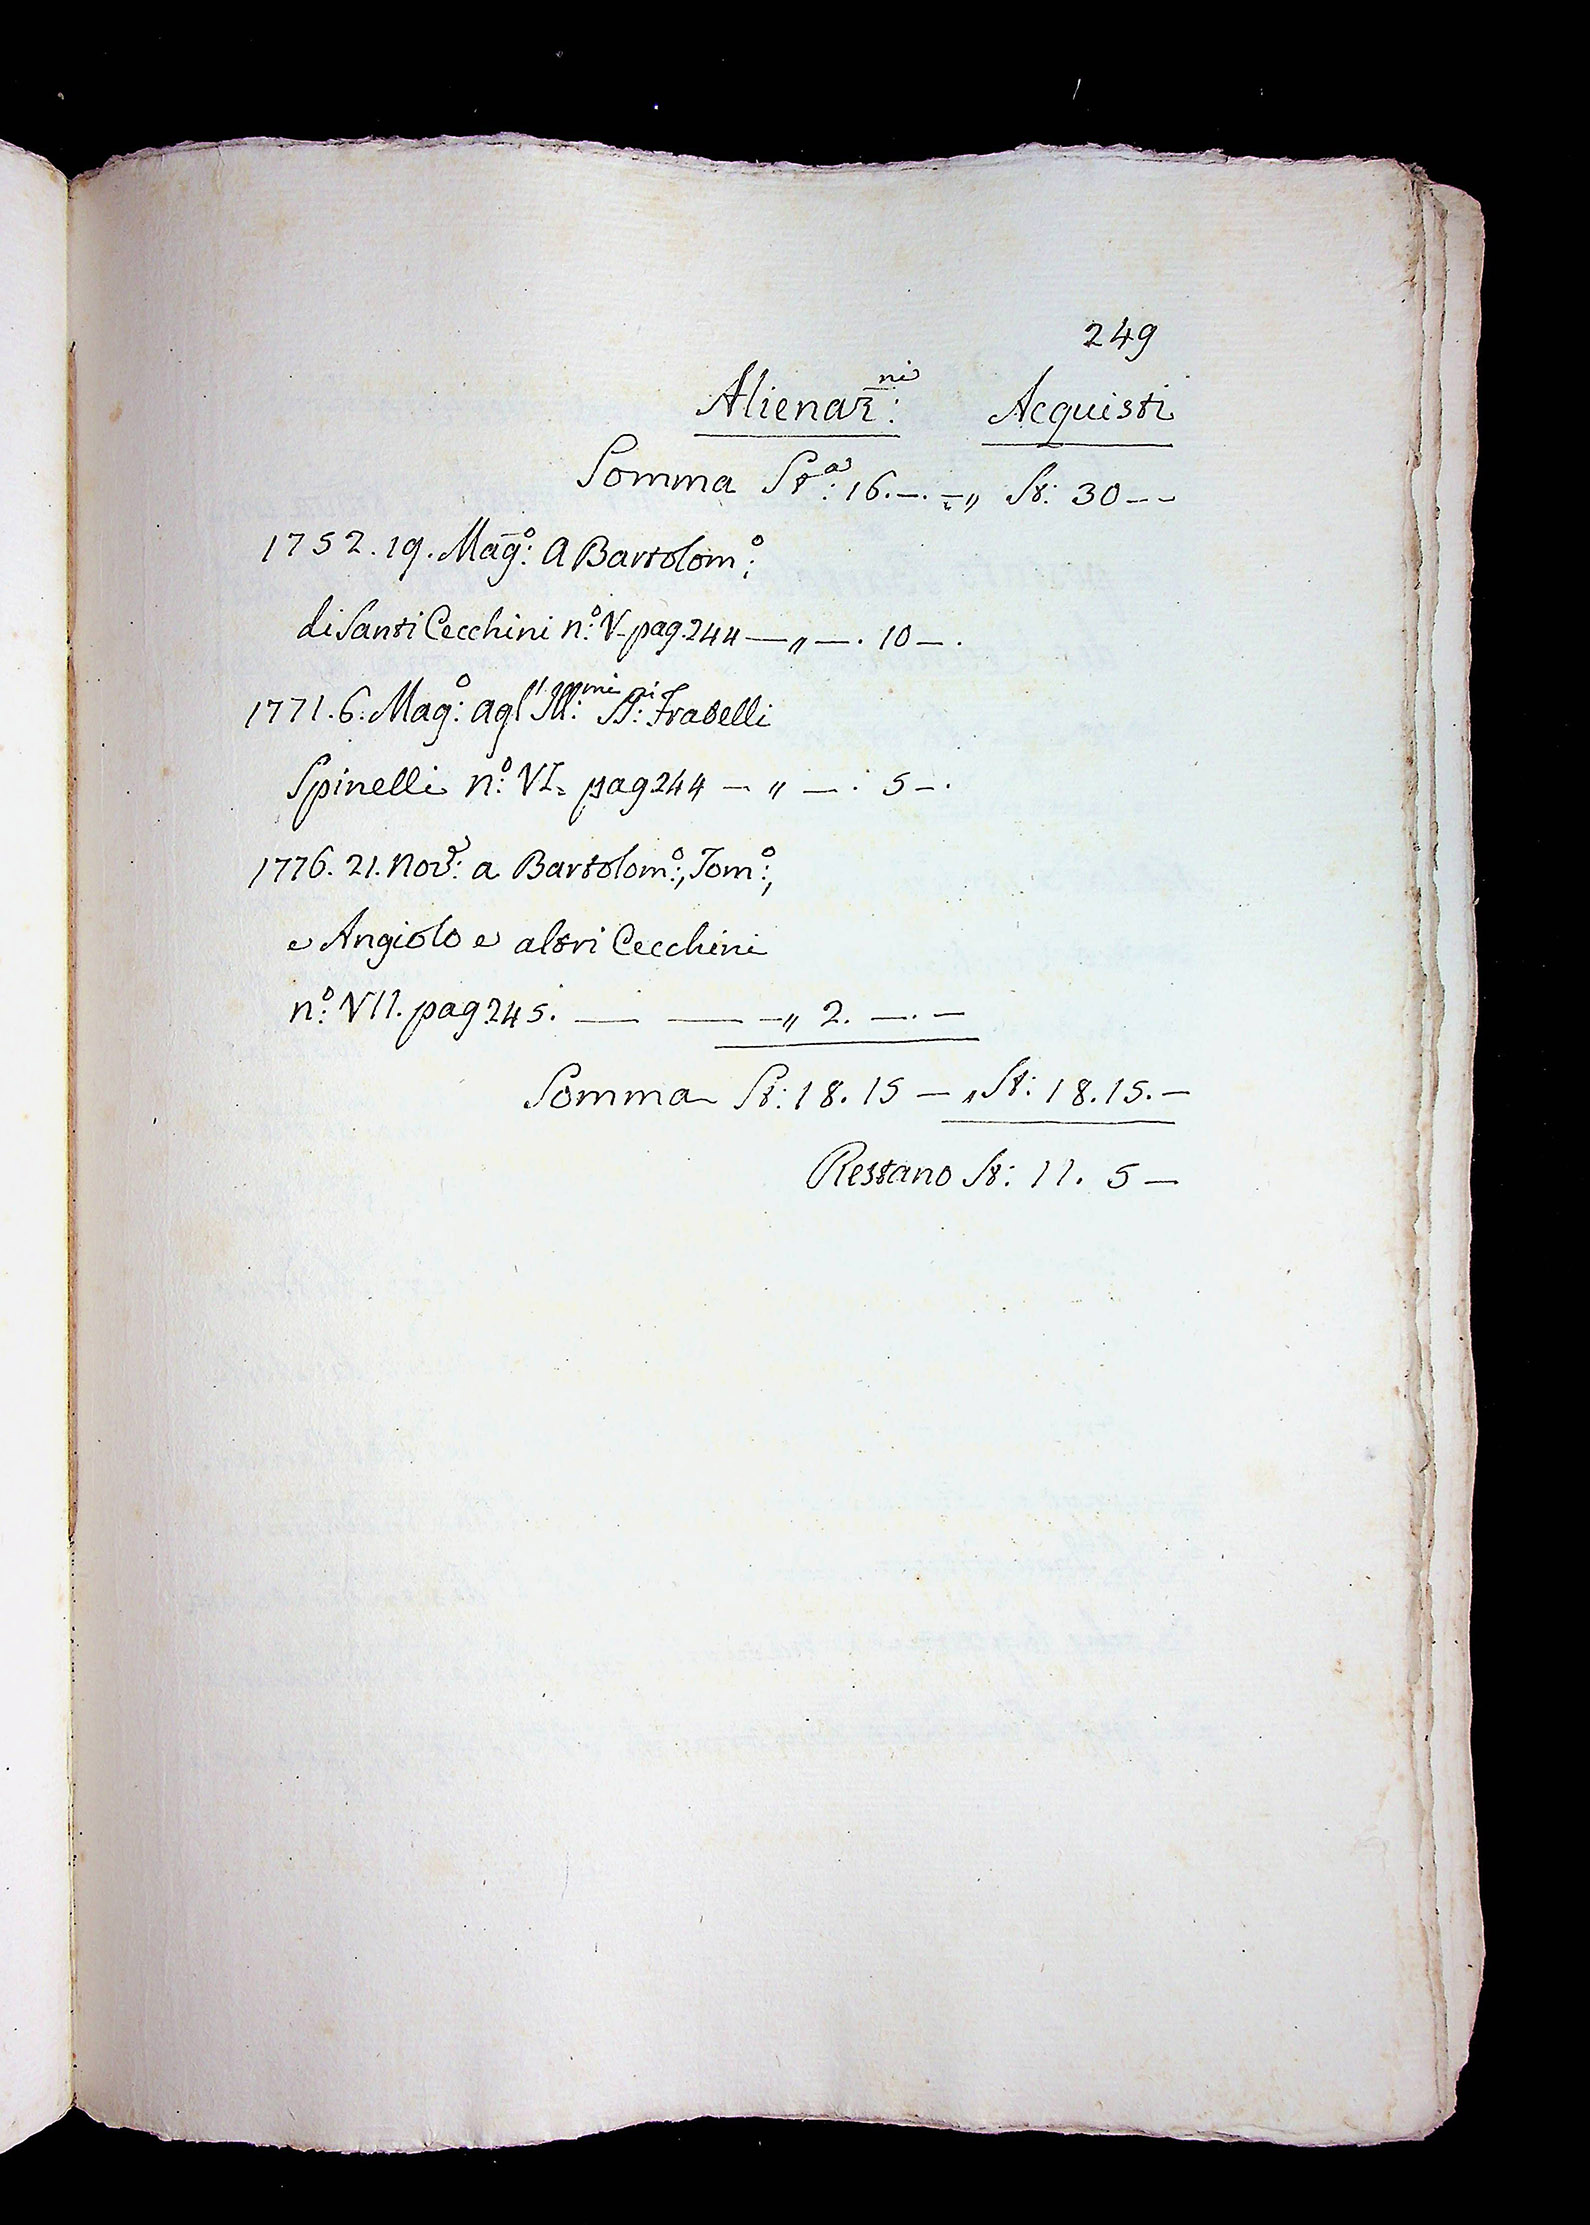 249
Alienaz:ni Acquisti
Somma St:a 16. — . — „ St: 30 - -
1752. 19. Mag:o A Bartolom:o
di Santi Cecchini n:o V. pag. 244 — „ — . 10 — .
1771. 6. Mag:o agl' Ill:mi SS:ri Fratelli
Spinelli n:o VI. pag 244 — „ — . 5 — .
1776. 21. Nov:e a Bartolom:o, Tom:o,
e Angiolo e altri Cecchini
n:o VII. pag 245. — — — „ 2. — . —
Somma St: 18. 15 — „ St: 18. 15. —
Restano St: 11. 5 —